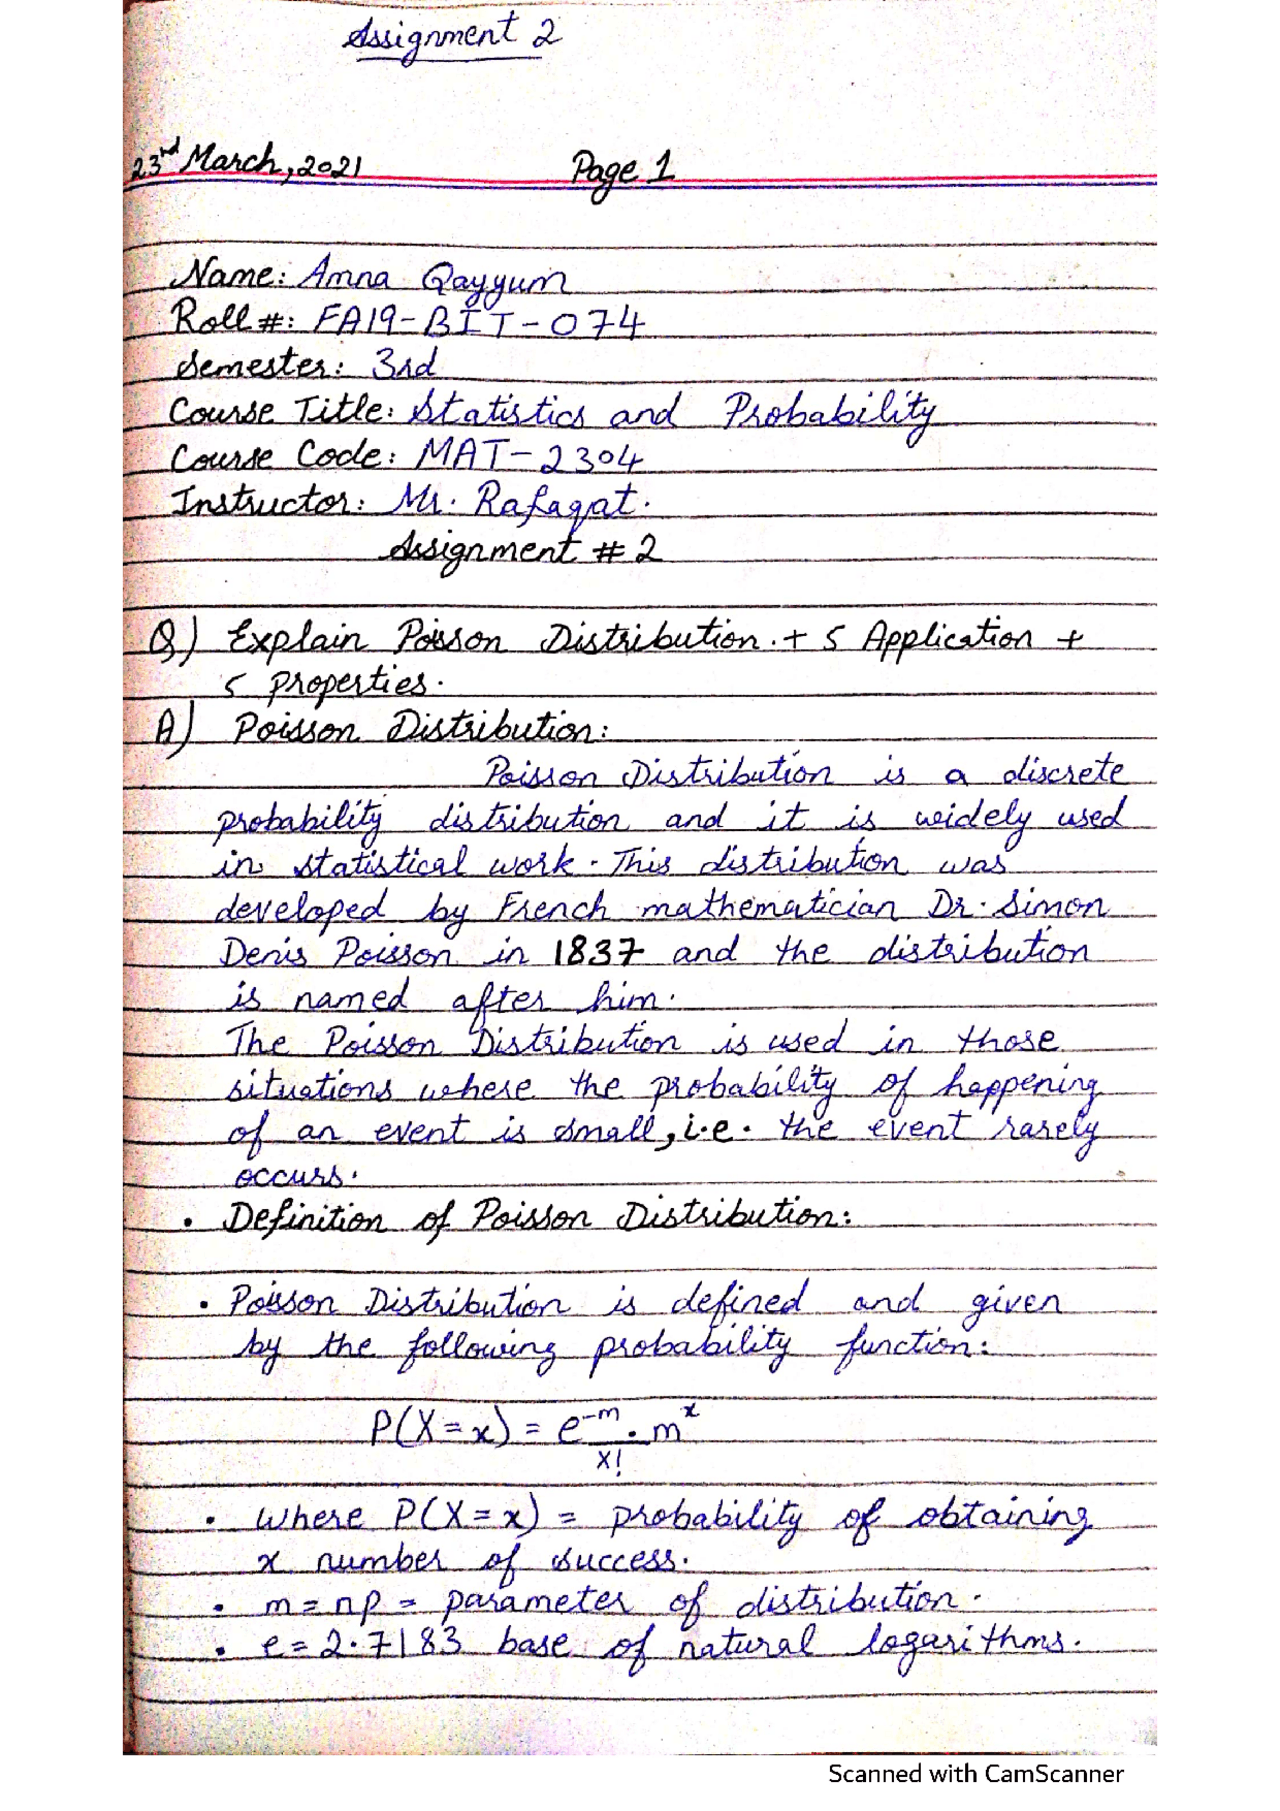 Assignment 2
23rd March, 2021 Page 1
Name: Amna Qayyum
Roll #: FA19-BIT-074
Semester: 3rd
Course Title: Statistics and Probability
Course Code: MAT-2304
Instructor: Mr. Rafaqat.
Assignment # 2
Q) Explain Poisson Distribution. + 5 Application +
5 properties.
A) Poisson Distribution:
Poisson Distribution is a discrete
probability distribution and it is widely used
in statistical work. This distribution was
developed by French mathematician Dr. Simon
Denis Poisson in 1837 and the distribution
is named after him.
The Poisson Distribution is used in those
situations where the probability of happening
of an event is small, i.e. the event rarely
occurs.
• Definition of Poisson Distribution:
• Poisson Distribution is defined and given
by the following probability function:
P(X=x) = e^-m . m^x
x!
• where P(X=x) = probability of obtaining
x number of success.
• m = np = parameter of distribution.
• e = 2.7183 base of natural logarithms.
Scanned with CamScanner